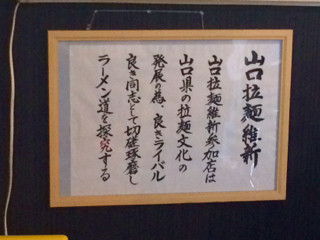 山口拉麵維新
山口拉麵維新参加店は
山口県の拉麵文化の
発展の為、良きライバル
良き同志として切磋琢磨し
ラーメン道を探究する